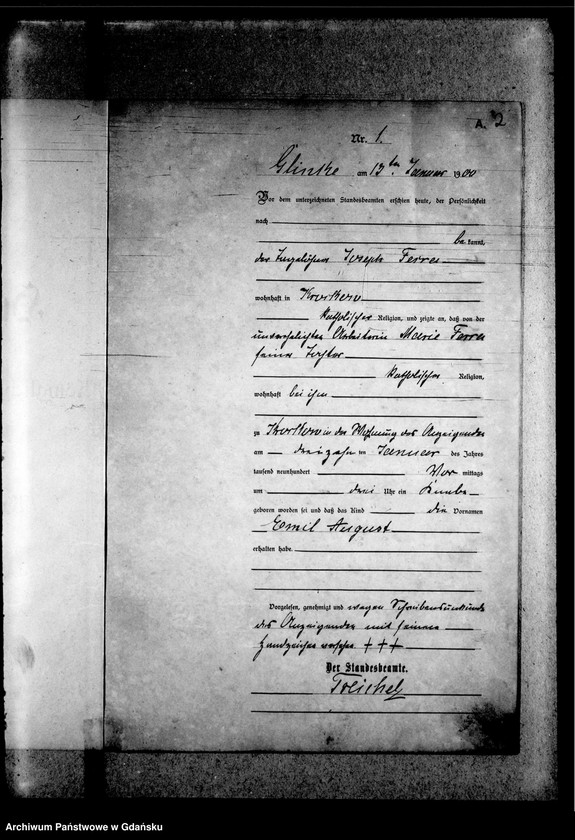 A. 2
Nr. 1.
Glinke am 13ten Januar 1900
Vor dem unterzeichneten Standesbeamten erschien heute, der Persönlichkeit
nach
bekannt,
der Joseph Ferra
wohnhaft in
katholischer Religion, und zeigte an, daß von der
unverehelichten Arbeiterin Marie Ferra
seiner Tochter
katholischer Religion,
wohnhaft bei ihm
zu in der Wohnung des Anzeigenden
am dreizehnten Januar des Jahres
tausend neunhundert Vormittags
um drei Uhr ein Knabe
geboren worden sei und daß das Kind die Vornamen
Emil August
erhalten habe.
Vorgelesen, genehmigt und wegen Schreibensunkunde
des Anzeigenden mit seinen
Handzeichen versehen + + +
Der Standesbeamte.
Treichel
Archiwum Państwowe w Gdańsku